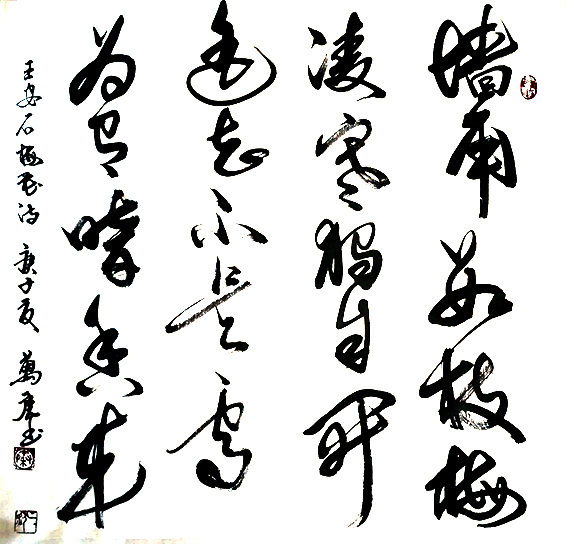 墙角数枝梅
凌寒独自开
遥知不是雪
为有暗香来
王安石梅花诗 庚子夏 萬